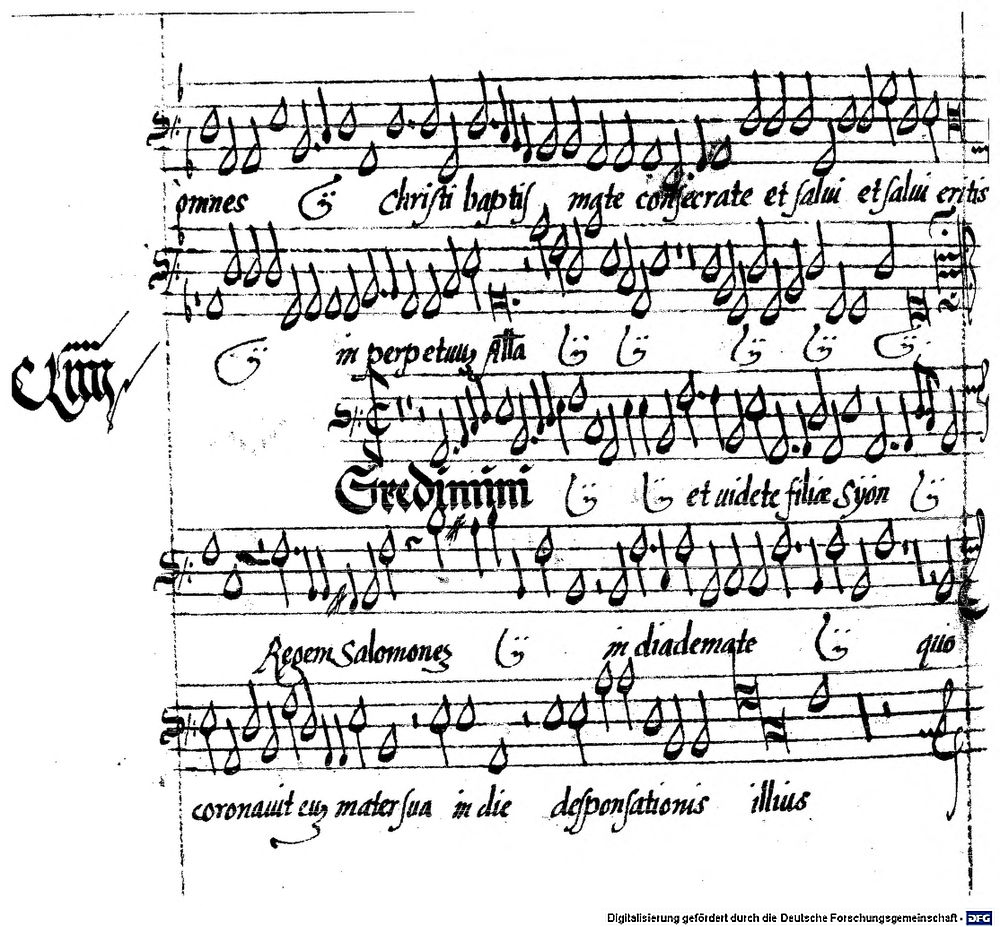 omnes ij Christi baptis mate consecrate et salui et salui eritis
ij in perpetuuz Alla ij ij ij ij ij
CLiiij
Gredimini ij ij et uidete filiæ Syon ij
Regem Salomonez ij in diademate ij quo
coronauit euz mater sua in die desponsationis illius
Digitalisierung gefördert durch die Deutsche Forschungsgemeinschaft - DFG